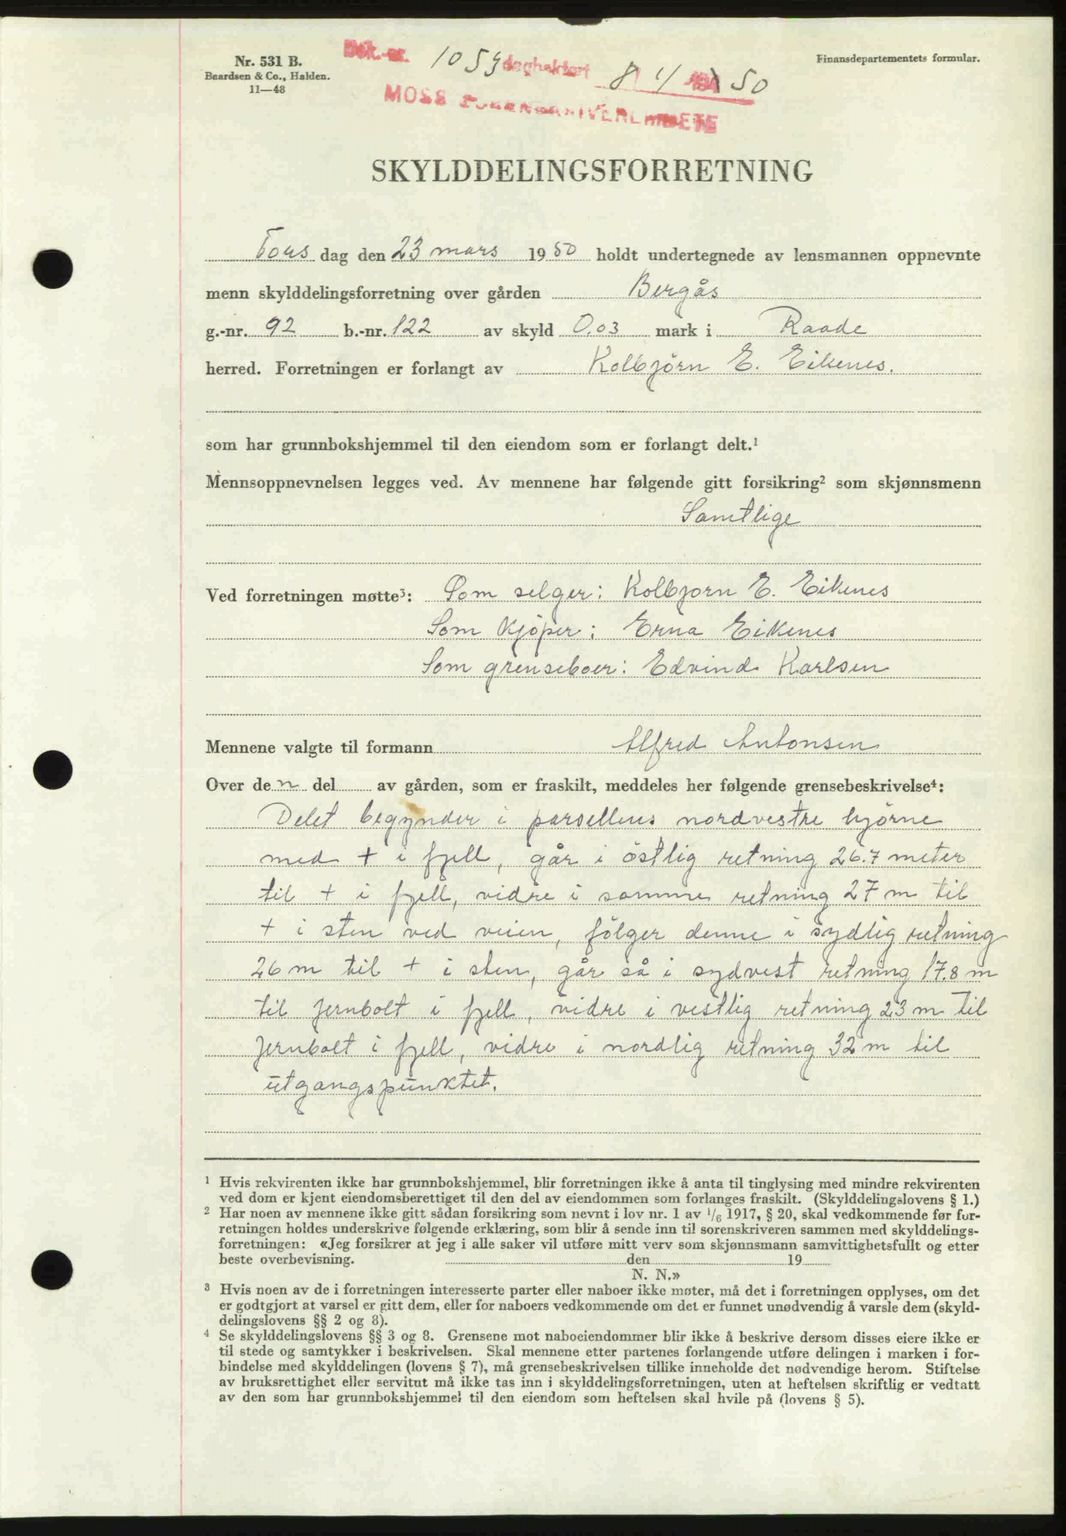 Nr. 531 B.
Baardsen & Co., Halden.
11—48
Dok.-nr. 1053 dagboksført 8/4 50
MOSS SORENSKRIVEREMBETE
Finansdepartementets formular.
SKYLDDELINGSFORRETNING
Tors dag den 23 mars 1950 holdt undertegnede av lensmannen oppnevnte
menn skylddelingsforretning over gården Bergås
g.-nr. 92 b.-nr. 122 av skyld 0.03 mark i Raade
herred. Forretningen er forlangt av Kolbjörn E. Eikenes.
som har grunnbokshjemmel til den eiendom som er forlangt delt.¹
Mennsoppnevnelsen legges ved. Av mennene har følgende gitt forsikring² som skjønnsmenn
Samtlige
Ved forretningen møtte³: Som selger: Kolbjorn E. Eikenes
Som Kjöper: Erna Eikenes
Som grenseboer: Edvind Karlsen
Mennene valgte til formann Alfred Antonsen
Over den del av gården, som er fraskilt, meddeles her følgende grensebeskrivelse⁴:
Delet begynder i parsellens nordvestre hjörne
med + i fjell, går i östlig retning 26.7 meter
til + i fjell, vidre i samme retning 27 m til
+ i sten ved veien, fölger denne i sydlig retning
26 m til + i sten, går så i sydvest retning 17.8 m
til Jernbolt i fjell, vidre i vestlig retning 23 m til
Jernbolt i fjell, vidre i nordlig retning 32 m til
utgangspunktet.
¹ Hvis rekvirenten ikke har grunnbokshjemmel, blir forretningen ikke å anta til tinglysing med mindre rekvirenten
ved dom er kjent eiendomsberettiget til den del av eiendommen som forlanges fraskilt. (Skylddelingslovens § 1.)
² Har noen av mennene ikke gitt sådan forsikring som nevnt i lov nr. 1 av ¹/₆ 1917, § 20, skal vedkommende før for-
retningen holdes underskrive følgende erklæring, som blir å sende inn til sorenskriveren sammen med skylddelings-
forretningen: «Jeg forsikrer at jeg i alle saker vil utføre mitt verv som skjønnsmann samvittighetsfullt og etter
beste overbevisning. den 19
N. N.»
³ Hvis noen av de i forretningen interesserte parter eller naboer ikke møter, må det i forretningen opplyses, om det
er godtgjort at varsel er gitt dem, eller for naboers vedkommende om det er funnet unødvendig å varsle dem (skyld-
delingslovens §§ 2 og 8).
⁴ Se skylddelingslovens §§ 3 og 8. Grensene mot naboeiendommer blir ikke å beskrive dersom disses eiere ikke er
til stede og samtykker i beskrivelsen. Skal mennene etter partenes forlangende utføre delingen i marken i for-
bindelse med skylddelingen (lovens § 7), må grensebeskrivelsen tillike inneholde det nødvendige herom. Stiftelse
av bruksrettighet eller servitut må ikke tas inn i skylddelingsforretningen, uten at heftelsen skriftlig er vedtatt
av den som har grunnbokshjemmel til den eiendom som heftelsen skal hvile på (lovens § 5).